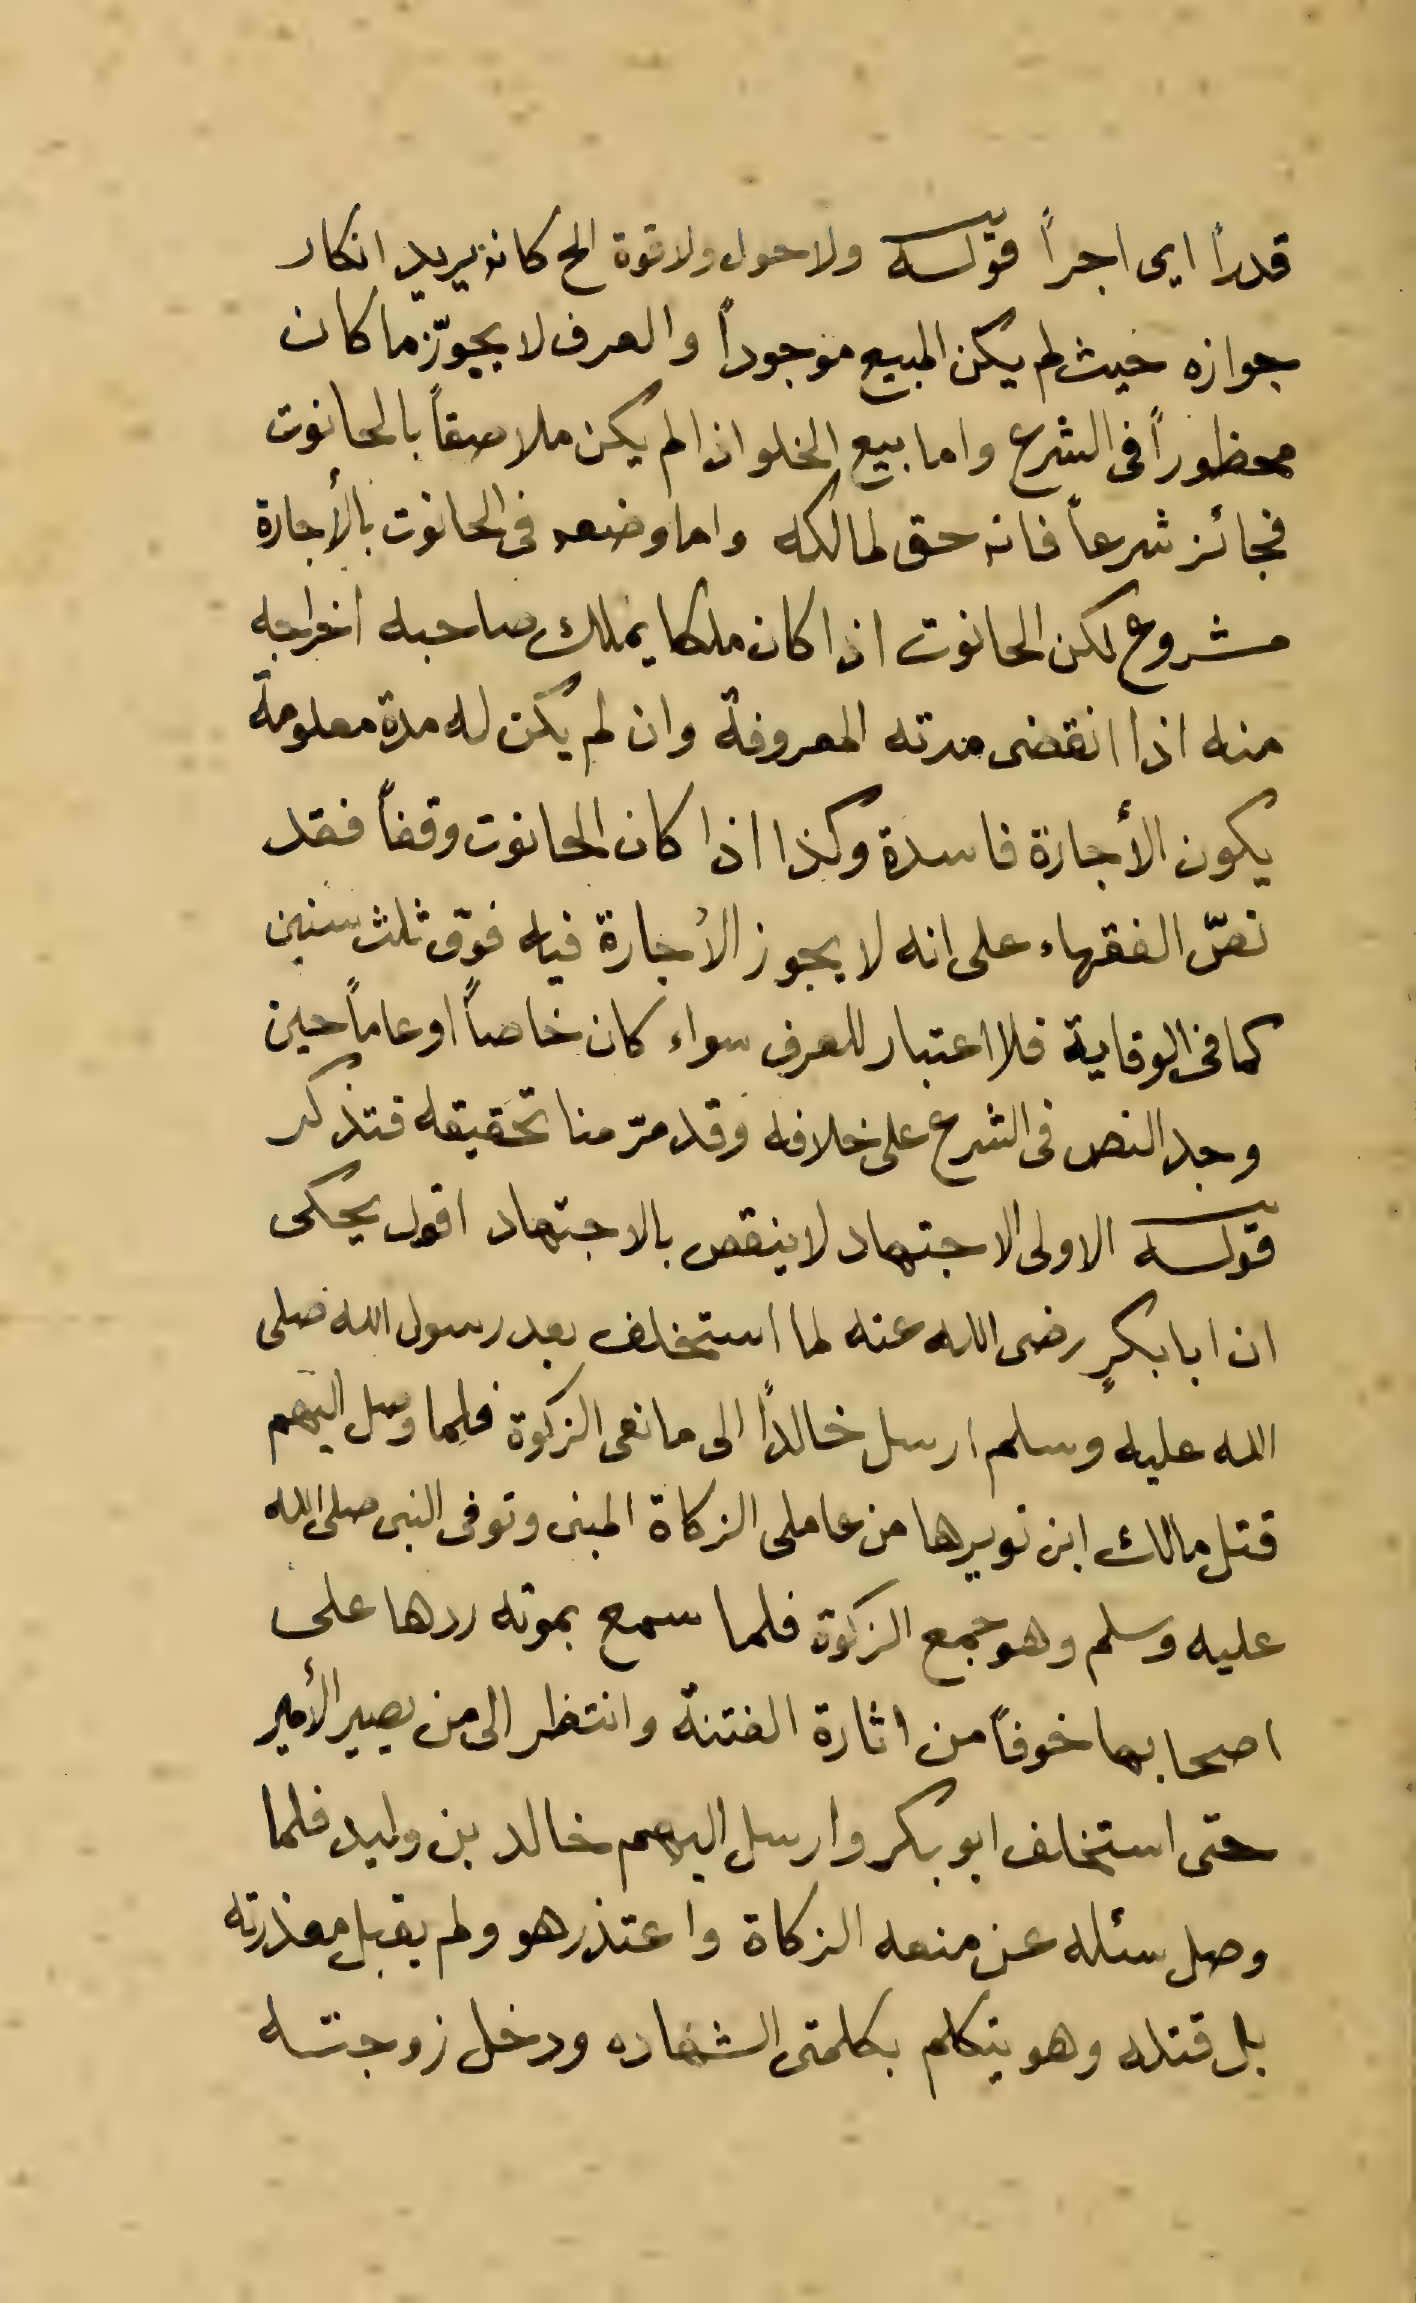 قدراً اى اجراً قوله ولا حول ولا قوة الخ كانه يريد انكار
جوازه حيث لم يكن المبيع موجوداً والعرف لا يجوّز ما كان
محظوراً فى الشرع واما بيع الخلو اذا لم يكن ملاصقاً بالحانوت
فجائز شرعاً فانه حق لمالكه واما وضعه فى الحانوت بالأجارة
مشروع لكن الحانوت اذا كان ملكا يملك صاحبه اخراجه
منه اذا انقضى مدته المعروفة وان لم يكن له مدة معلومة
يكون الأجارة فاسدة وكذا اذا كان الحانوت وقفاً فقد
نصّ الفقهاء على انه لا يجوز الأجارة فيه فوق ثلث سنين
كما فى الوقاية فلا اعتبار للعرف سواء كان خاصاً او عاماً حين
وجد النص فى الشرع على خلافه وقد مرّ منا تحقيقه فتذكر
قوله الاولى الاجتهاد لا ينقص بالاجتهاد اقول يحكى
ان ابا بكرٍ رضى الله عنه لما استخلف بعد رسول الله صلى
الله عليه وسلم ارسل خالداً الى مانعى الزكوة فلما وصل اليهم
قتل مالك ابن نويرها من عاملى الزكاة المبنى وتوفى النبى صلى الله
عليه وسلم وهو جمع الزكوة فلما سمع بموته ردها على
اصحابها خوفاً من اثارة الفتنة وانتظر الى من يصير الأمير
حتى استخلف ابو بكر وارسل اليهم خالد بن وليد فلما
وصل سئله عن منعه الزكاة واعتذر هو ولم يقبل معذرته
بل قتله وهو يتكلم بكلمتى الشهاده ودخل زوجته